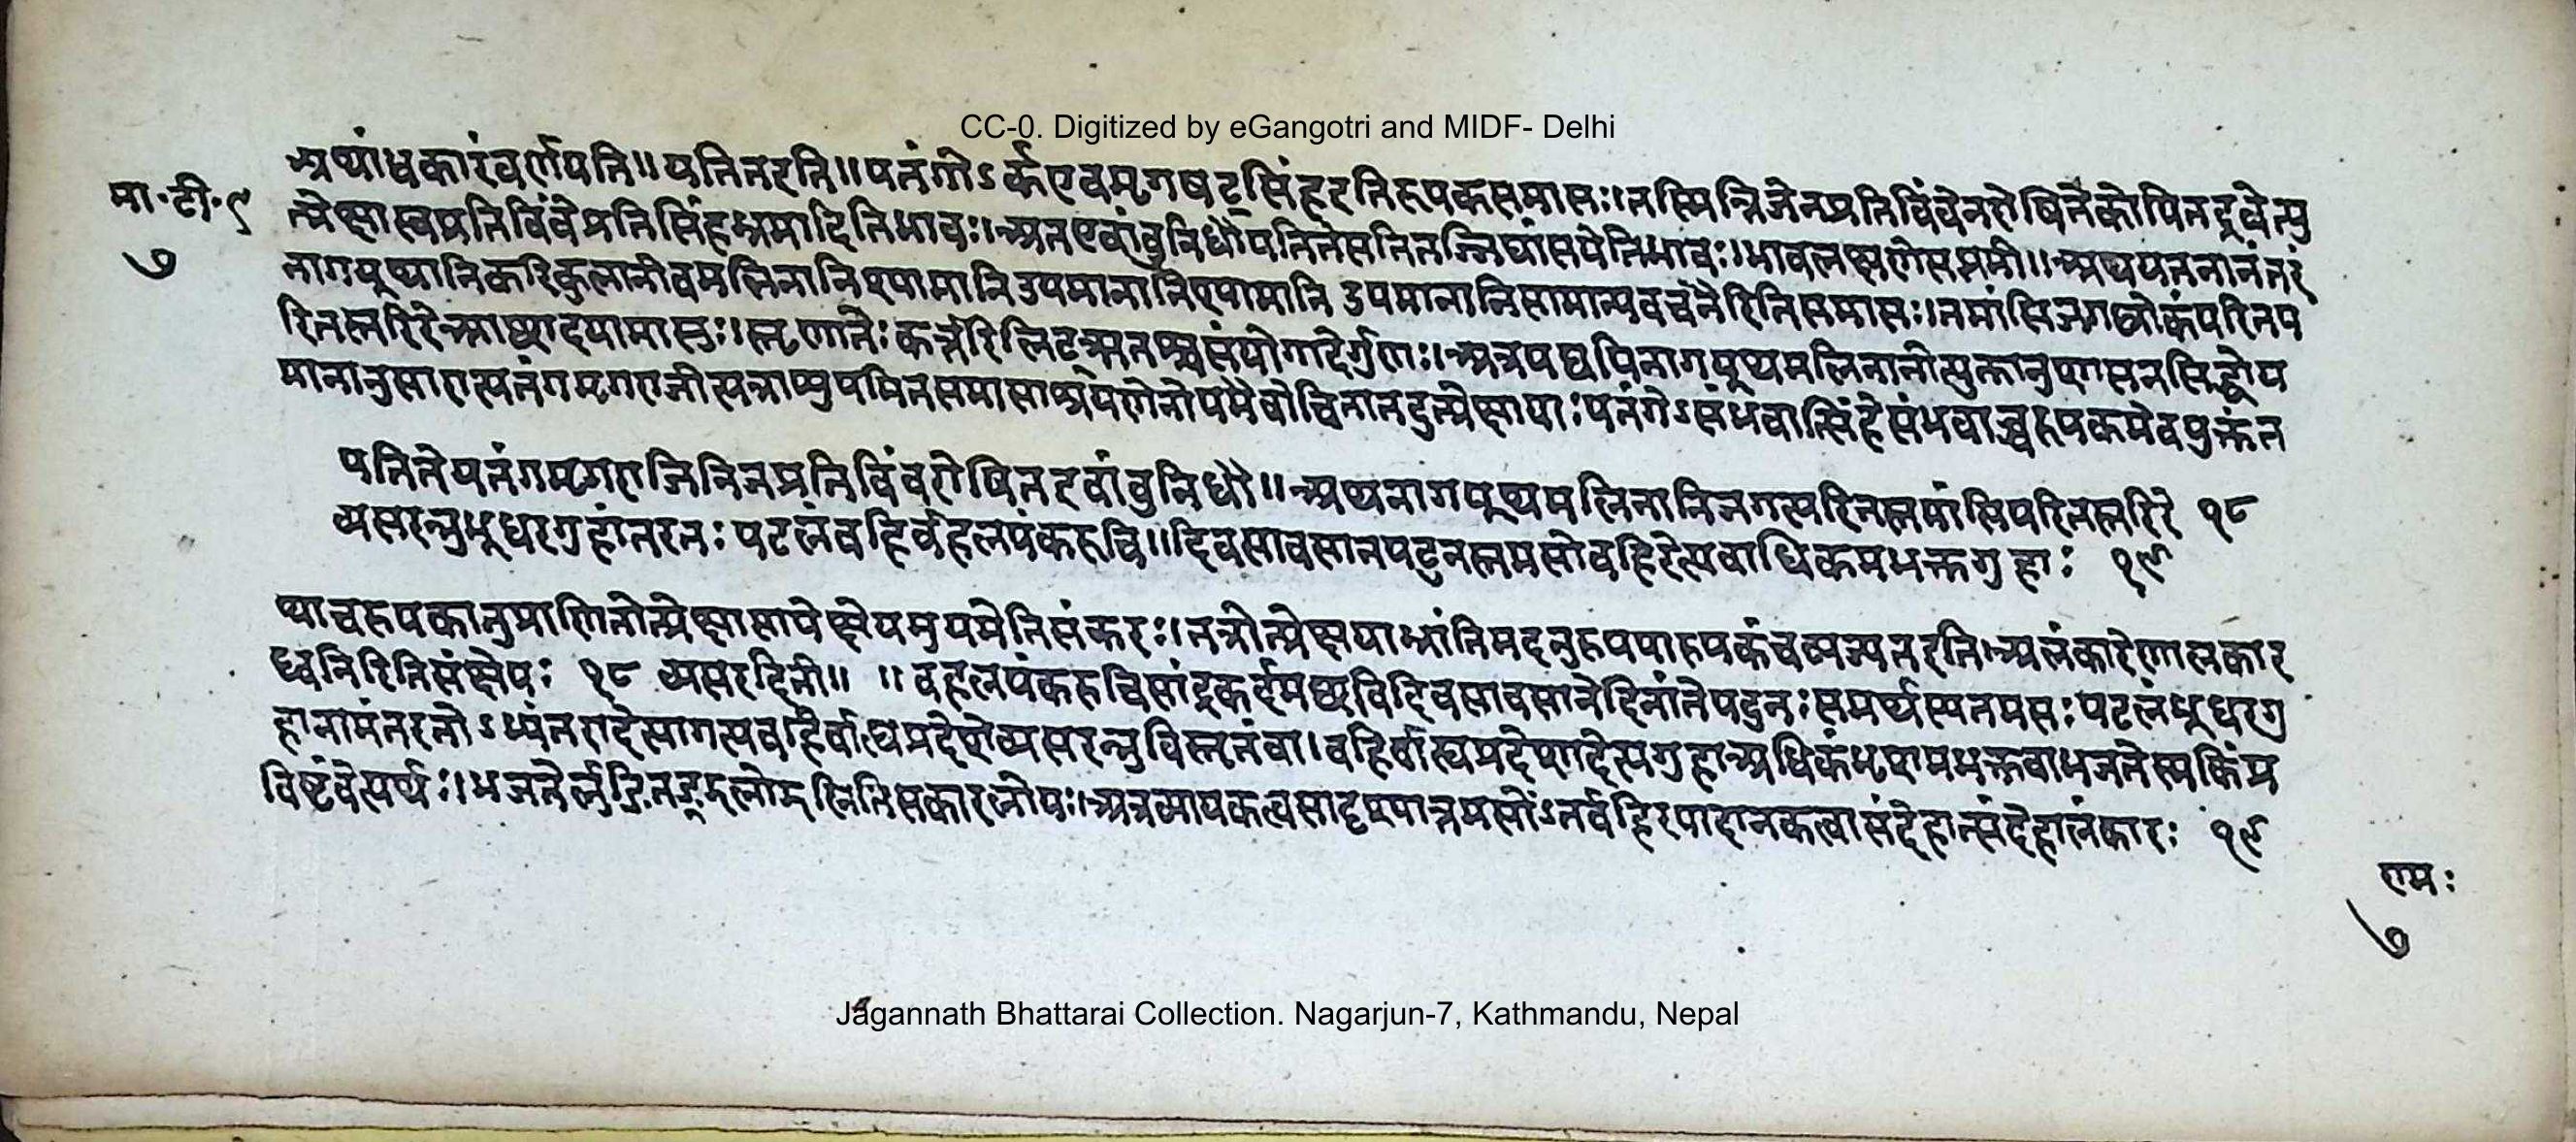 CC-0. Digitized by eGangotri and MIDF- Delhi
मा॰टी॰९
७
अथांधकारंवर्णयति॥पतितरति॥पतंगोऽर्कएवमृगषट्सिंहरतिरूपकसमासः।तस्मिन्निजेनप्रतिविंवेनरोषितेकोपितद्रवेत्यु
त्प्रेक्षास्वप्रतिविंवेप्रतिसिंहभ्रमादितिभावः।अतएवांवुनिधौपतितेसतितज्जिघांसयेतिभावः।भावलक्षणेसप्तमी॥अथपतनानंतरं
नागयूथानिकरिकुलानीवमलिनानिश्यामानिउपमानानिश्यामानिउपमानानिसामान्यवचनैरितिसमासः।तमांसिजगल्लोकंपरितप
रितस्तरिरेआछादयामासुः।स्तृणातेःकर्त्तरिलिट्ऋतश्चसंयोगादेर्गुणः।अत्रयद्यपिनागयूथमलिनानीत्युक्तानुशासनसिद्धोप
मानानुसारात्पतंगमृगराजीत्यत्राप्युपमितसमासाश्रयणेनोपमैवोचितातदुत्प्रेक्षायाःपतंगेऽसंभवात्सिंहेसंभवाच्चरूपकमेवयुक्तंत
पतितेपतंगमृगराजिनिजप्रतिविंवरोषितटवांवुनिधौ॥अथनागयूथमलिनानिजगत्परितस्तमांसिपरितस्तरिरे १८
व्यसरन्नुभूधरगुहांतरतः पटलंवहिर्वहलपंकरुचि॥दिवसावसानपटुनस्तमसोवहिरेत्यवाधिकमभक्तगुहाः १९
थाचरूपकानुप्राणितोत्प्रेक्षासापेक्षेयमुपमेतिसंकरः।तत्रोत्प्रेक्षयाभ्रांतिमदनुरूपपारूपकंचव्यज्यतरति।अलंकारेणालंकार
ध्वनिरितिसंक्षेपः १८ व्यसरदिती॥ ॥वहलपंकरुचिसांद्रकर्दमछविदिवसावसानेदिनांतेपटुनःसमर्थस्यतमसःपटलंभूधरगु
हानामंतरतोऽभ्यंतरादेत्यागत्यवहिर्वाह्यप्रदेशेव्यसरन्नुविस्तृतंवा।वहिर्वाह्यप्रदेशादेत्यगुहाअधिकंभृशमभक्तवाभजतेस्मकिंप्र
विष्टंवेत्यर्थः।भजतेर्लुङितङ्झलोझलीतिसकारलोपः।अत्रव्यापकत्वसादृश्यात्तमसोंऽतर्वहिरपादानकत्वासंदेहात्संदेहालंकारः १९
रामः
७
Jagannath Bhattarai Collection. Nagarjun-7, Kathmandu, Nepal